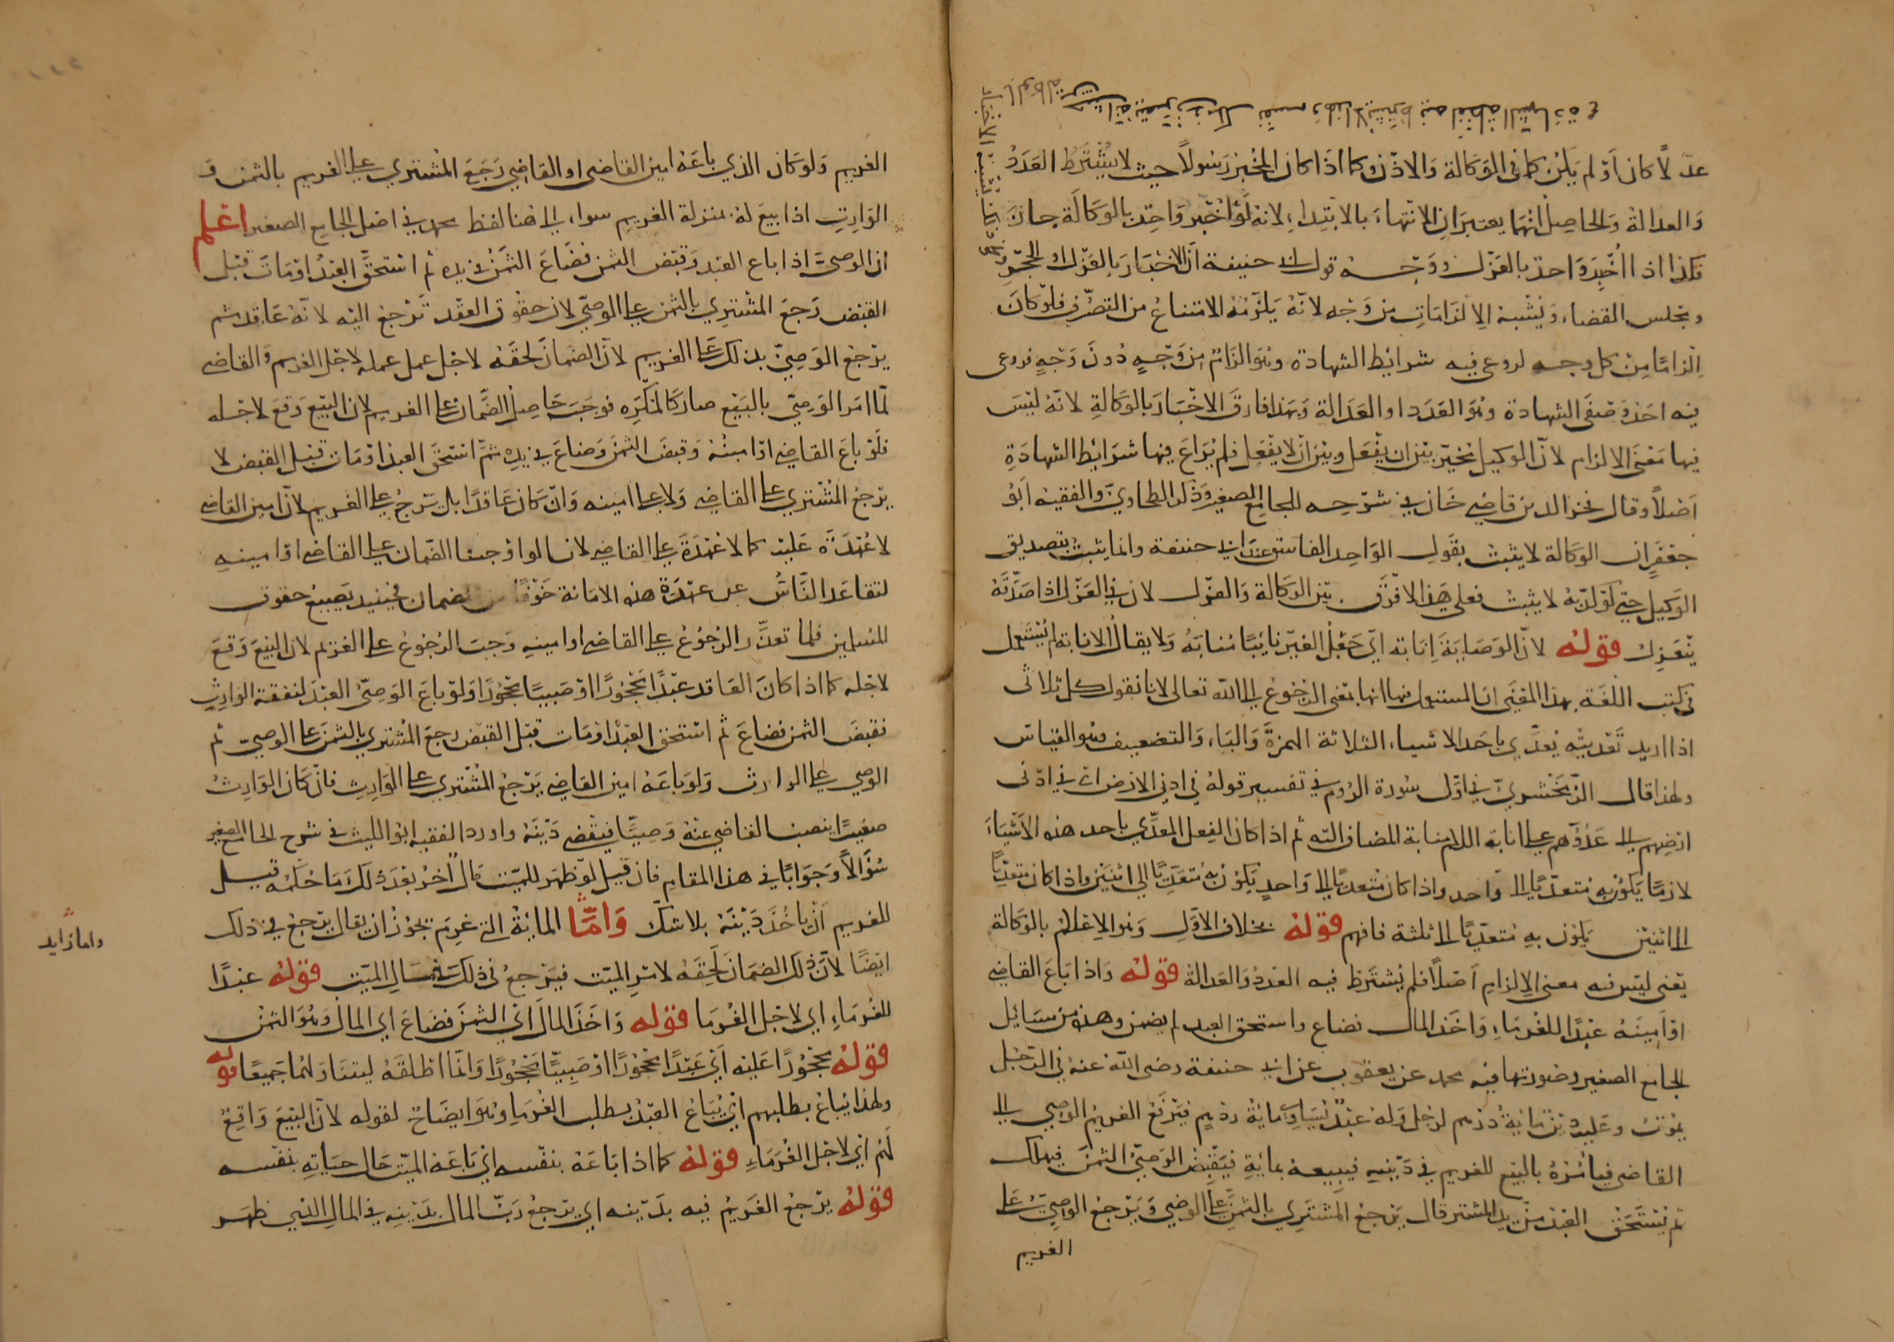 عدلًا كان أو لم يكن كما في الوكالة والاذن وكما اذا كان المخبر رسولًا حيث لا يشترط العدد
والعدالة والحاصل انهما يعتبران الانتهاء بالابتداء لانه لو اخبر واحد بالوكالة جاز
فكذا اذا اخبر واحد بالعزل ووجه قول ابي حنيفة ان الاخبار بالعزل والحجر
ومجلس القضاء ويشبه الالزامات من وجه لانه يلزمه الامتناع من التصرف فلو كان
الزامًا من كل وجه لروعي فيه شرائط الشهادة وهو الزام من وجه دون وجه فروعي
فيه احد وصفي الشهادة وهو العدد او العدالة وبهذا فارق الاخبار بالوكالة لانه ليس
فيها معنى الالزام لان الوكيل مخير بين ان يفعل وبين ان لا يفعل فلم يراع فيها شرائط الشهادة
اصلًا وقال فخر الدين قاضي خان في شرحه للجامع الصغير وذكر الطحاوي والفقيه ابو
جعفر ان الوكالة لا يثبت بقول الواحد الفاسق عند ابي حنيفة وانما يثبت بتصديق
الوكيل حتى لو كذبه لا يثبت فعلى هذا لا فرق بين الوكالة والعزل لان في العزل اذا صدقه
ينعزل قوله لان الوصاية انابة اي جعل الغير نائبًا منابه ولا يقال الانابة لم يستعمل
في كتب اللغة بهذا المعنى انما المستعمل فيها انها بمعنى الرجوع الى الله تعالى لانا نقول كل ثلاثي
اذا اريد تعديته يعدى باحد الاشياء الثلاثة الهمزة والباء والتضعيف وهو القياس
ولهذا قال الزمخشري في اول سورة الروم في تفسير قوله في ادنى الارض اي في ادنى
ارضهم الى عدوهم على انابة اللام منابة المضاف اليه ثم اذا كان الفعل المعدى باحد هذه الاشياء
لازمًا يكون به متعديًا الى واحد واذا كان متعديًا الى واحد يكون به متعديًا الى اثنين واذا كان متعديًا
الى اثنين يكون به متعديًا الى ثلثة فافهم قوله بخلاف الاول وهو الاعلام بالوكالة
يعني ليس فيه معنى الالزام اصلًا فلم يشترط فيه العدد والعدالة قوله واذا باع القاضي
او امينه عبدًا للغرماء واخذ المال فضاع واستحق العبد لم يضمن وهذه من مسائل
الجامع الصغير وصورتها فيه محمد عن يعقوب عن ابي حنيفة رضي الله عنه في الرجل
يموت وعليه دين مائة درهم لرجل وله عبد يساوي مائة درهم فيرفع الغريم الوصي الى
القاضي فيامره بالبيع للغريم في دينه فيبيعه بمائة فيقبض الوصي الثمن فيهلك
ثم يستحق العبد من يد المشتر قال يرجع المشتري بالثمن على الوصي ويرجع الوصي على
الغريم
الغريم ولو كان الذي باعه امين القاضي او القاضي رجع المشتري على الغريم بالثمن و
الوارث اذا بيع له بمنزلة الغريم سواء الى هنا لفظ محمد في اصل الجامع الصغير اعلم
ان الوصي اذا باع العبد وقبض الثمن فضاع الثمن في يده ثم استحق العبد او مات قبل
القبض رجع المشتري بالثمن على الوصي لان حقوق العقد ترجع اليه لانه عاقد ثم
يرجع الوصي بذلك على الغريم لان الضمان لحقه لاجل عمل عمله لاجل الغريم والقاضي
لما امر الوصي بالبيع صار كالمكره فوجب حاصل الضمان على الغريم لان البيع وقع لاجله
فلو باع القاضي او امينه وقبض الثمن وضاع في يده ثم استحق العبد او مات قبل القبض لا
يرجع المشتري على القاضي ولا على امينه وان كان عاقدًا بل يرجع على الغريم لان امين القاضي
لا عهدة عليه كما لا عهدة على القاضي لانا لو اوجبنا الضمان على القاضي او امينه
لتقاعد الناس عن عهدة هذه الامانة خوفًا من الضمان فحينئذ يضيع حقوق
المسلمين فلما تعذر الرجوع على القاضي او امينه وجب الرجوع على الغريم لان البيع وقع
لاجله كما اذا كان العاقد عبدًا محجورًا او صبيًا محجورًا ولو باع الوصي العبد لنفقة الوارث
فقبض الثمن فضاع ثم استحق العبد او مات قبل القبض رجع المشتري بالثمن على الوصي ثم
الوصي على الوارث ولو باعه امين القاضي يرجع المشتري على الوارث فان كان الوارث
صغيرًا ينصب القاضي عنه وصيًا فيقضي دينه واورد الفقيه ابو الليث في شرح الجامع الصغير
سؤالًا وجوابًا في هذا المقام فان قيل لو ظهر للميت مال آخر بعد ذلك ما حكمه قيل
للغريم ان ياخذ دينه بلا شك واما المائة التي غرم يجوز ان يقال يرجع في ذلك
ايضًا لان ذلك الضمان لحقه لامر الميت فيرجع في ذلك في مال الميت قوله عبدًا
للغرماء اي لاجل الغرما قوله واخذ المال اي الثمن فضاع اي المال وهو الثمن
قوله محجورًا عليه اي عبدًا محجورًا او صبيًا محجورًا وانما اطلقه ليتناولهما جميعًا قوله
ولهذا يباع بطلبهم اي يباع العبد بطلب الغرما وهو ايضاح لقوله لان البيع واقع
لهم اي لاجل الغرماء قوله كما اذا باعه بنفسه اي باعه الميت حال حياته بنفسه
قوله يرجع الغريم فيه بدينه اي يرجع رب المال بدينه في المال الذي ظهر